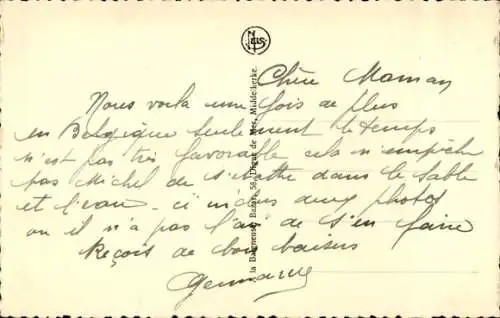 Chère Maman
Nous voila une fois de plus
en Belgique seulement le temps
n'est pas très favorable cela n'empêche
pas Michel de s'mettre dans le sable
et l'eau - ci inclus deux photos
ou il n'a pas l'air de s'en faire
Reçois de bons baisers
Germaine
Bazar, 58, Digue de Mer, Middelkerke.